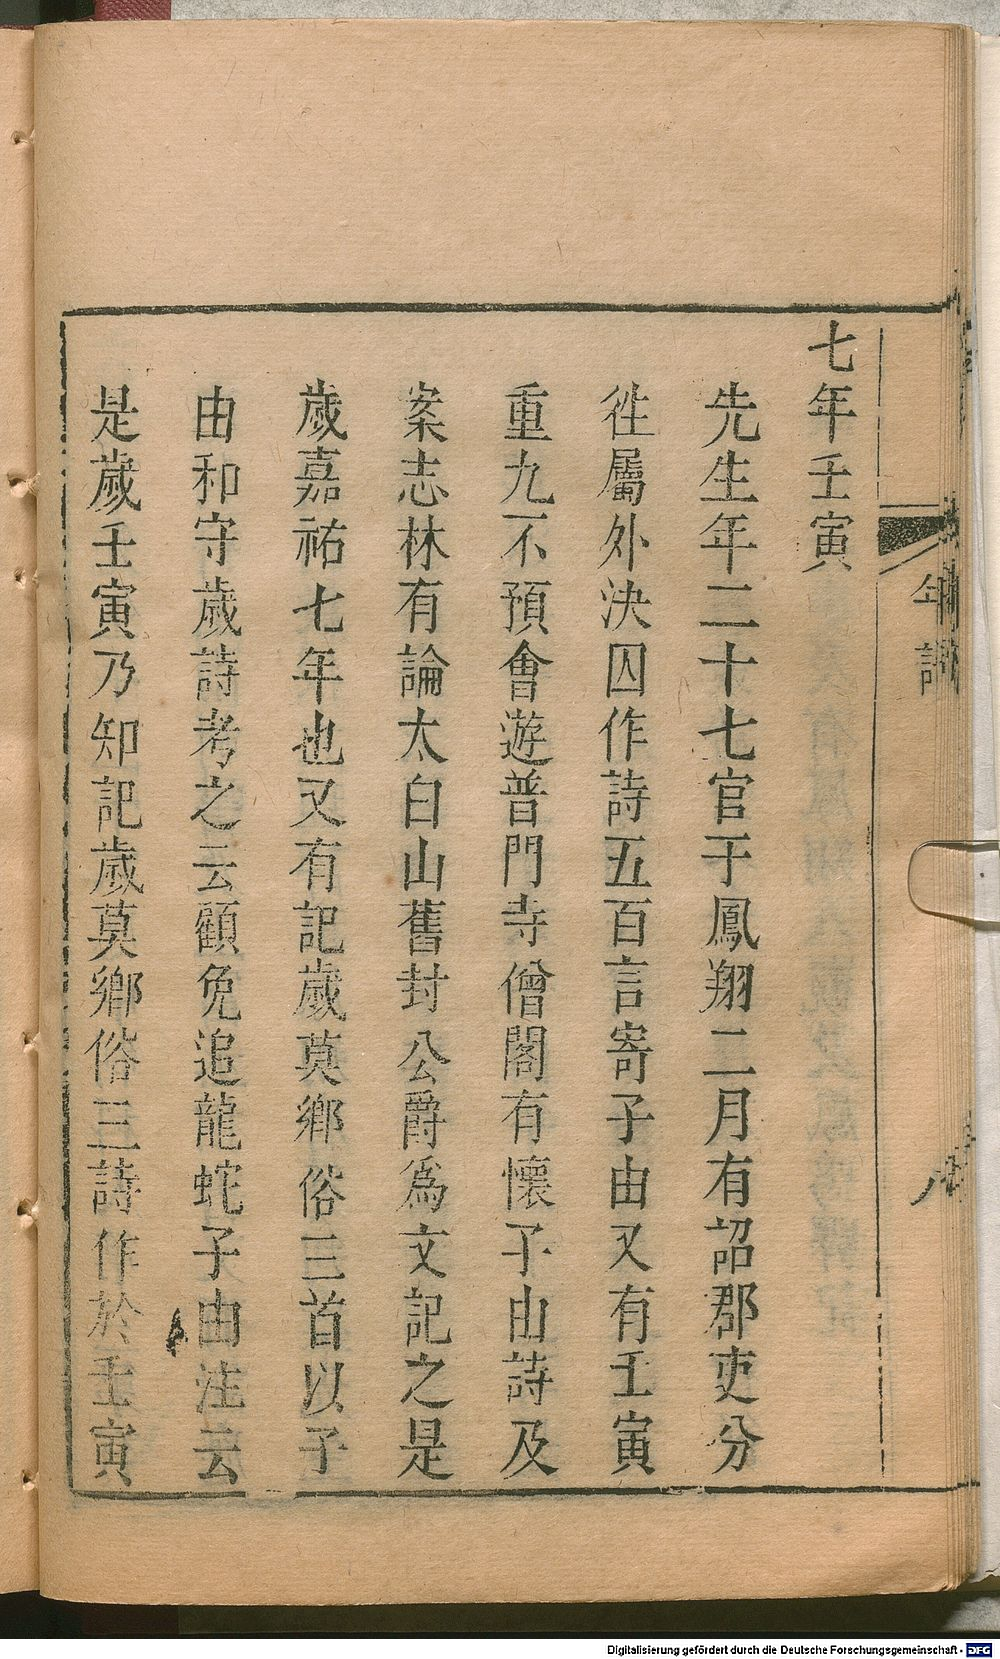 七年壬寅
先生年二十七官于鳳翔二月有詔郡吏分
徃屬外決囚作詩五百言寄子由又有壬寅
重九不預會遊普門寺僧閣有懷子由詩及
案志林有論太白山舊封公爵爲文記之是
歲嘉祐七年也又有記歲莫鄉俗三首以子
由和守歲詩考之云顧免追龍蛇子由注云
是歲壬寅乃知記歲莫鄉俗三詩作於壬寅
年譜
八
Digitalisierung gefördert durch die Deutsche Forschungsgemeinschaft - DFG